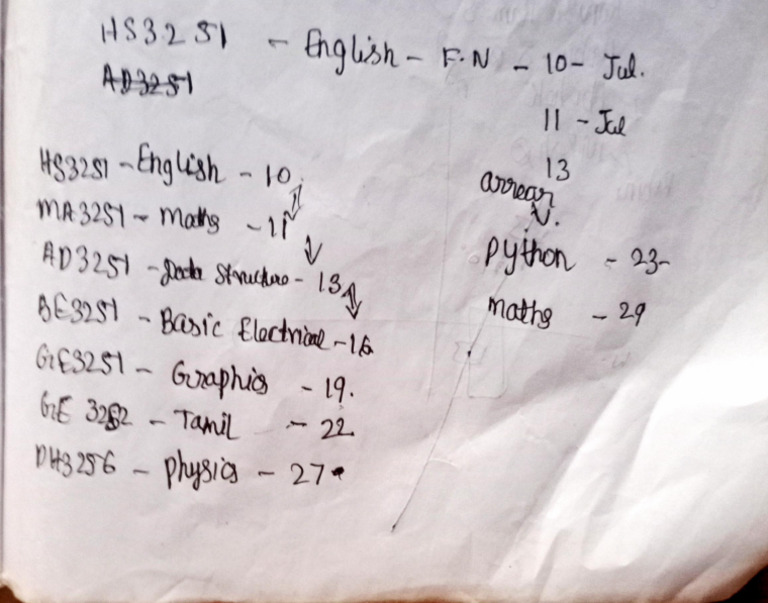 HS3251 - English - F.N - 10 - Jul.
AD3251
11 - Jul
13
HS3251 - English - 10
MA3251 - Maths - 11
AD3251 - Data Structure - 13
BE3251 - Basic Electrical - 16
GE3251 - Graphics - 19.
GE 3252 - Tamil - 22
PH3256 - Physics - 27
arrear
Python - 23-
Maths - 29